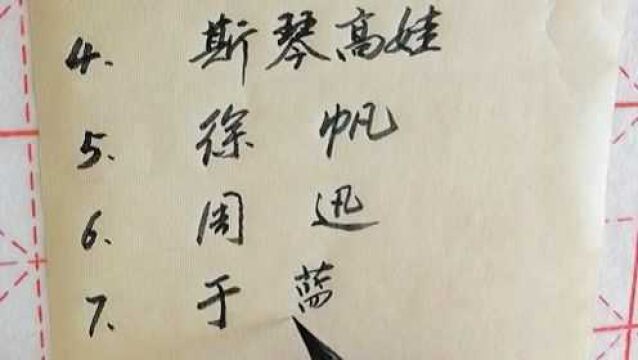 4. 斯琴高娃
5. 徐帆
6. 周迅
7. 于蓝